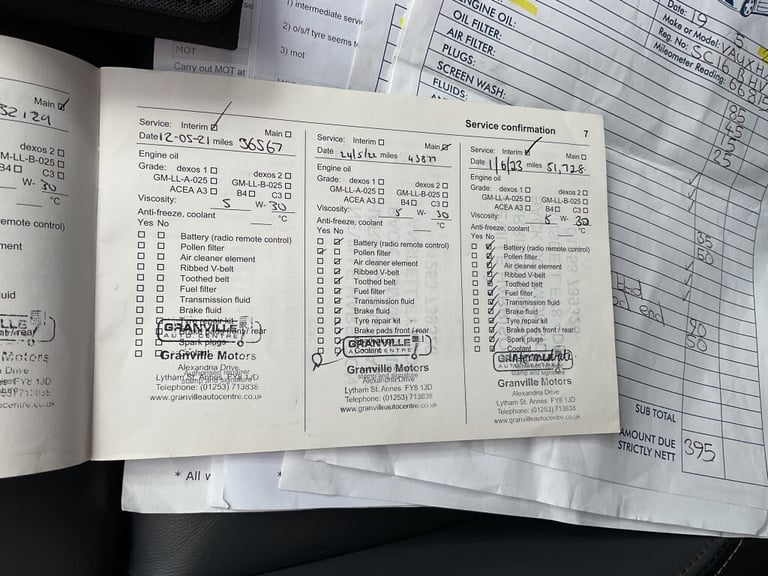 1) intermediate servi
2) o/s/f tyre seems t
3) mot
MOT
Carry out MOT at
ENGINE OIL:
OIL FILTER:
AIR FILTER:
PLUGS:
SCREEN WASH:
FLUIDS:
Date: 19 5
Make or Model: VAUXHA
Reg. No: SC16 BHV
Mileometer Reading: 66815
85
45
15
25
35
50
90
50
SUB TOTAL
AMOUNT DUE
STRICTLY NETT
395
* All
Main
32124
dexos 2
M-LL-B-025
B4 C3
W- 30
°C
emote control)
ment
uid
Motors
Service confirmation 7
Service: Interim Main
Date 12-05-21 miles 36567
Engine oil
Grade: dexos 1 dexos 2
GM-LL-A-025 GM-LL-B-025
ACEA A3 B4 C3
Viscosity: 5 W- 30
Anti-freeze, coolant °C
Yes No
Battery (radio remote control)
Pollen filter
Air cleaner element
Ribbed V-belt
Toothed belt
Fuel filter
Transmission fluid
Brake fluid
Tyre repair kit
GRANVILLE
AUTO CENTRE
Spark plugs
Coolant
Granville Motors
Alexandria Drive
Lytham St. Annes FY8 1JD
Telephone: (01253) 713838
www.granvilleautocentre.co.uk
Service: Interim Main
Date 24/5/22 miles 43877
Engine oil
Grade: dexos 1 dexos 2
GM-LL-A-025 GM-LL-B-025
ACEA A3 B4 C3
Viscosity: 5 W- 30
Anti-freeze, coolant °C
Yes No
Battery (radio remote control)
Pollen filter
Air cleaner element
Ribbed V-belt
Toothed belt
Fuel filter
Transmission fluid
Brake fluid
Tyre repair kit
Brake pads front / rear
GRANVILLE
Coolant
Granville Motors
stamp and signature
Alexandria Drive
Lytham St. Annes FY8 1JD
Telephone: (01253) 713838
www.granvilleautocentre.co.uk
Service: Interim Main
Date 1/6/23 miles 51,728
Engine oil
Grade: dexos 1 dexos 2
GM-LL-A-025 GM-LL-B-025
ACEA A3 B4 C3
Viscosity: 5 W- 30
Anti-freeze, coolant °C
Yes No
Battery (radio remote control)
Pollen filter
Air cleaner element
Ribbed V-belt
Toothed belt
Fuel filter
Transmission fluid
Brake fluid
Tyre repair kit
Brake pads front / rear
Spark plugs
Coolant
intermediate
Granville Motors
Alexandria Drive
Lytham St. Annes FY8 1JD
Telephone: (01253) 713838
www.granvilleautocentre.co.uk